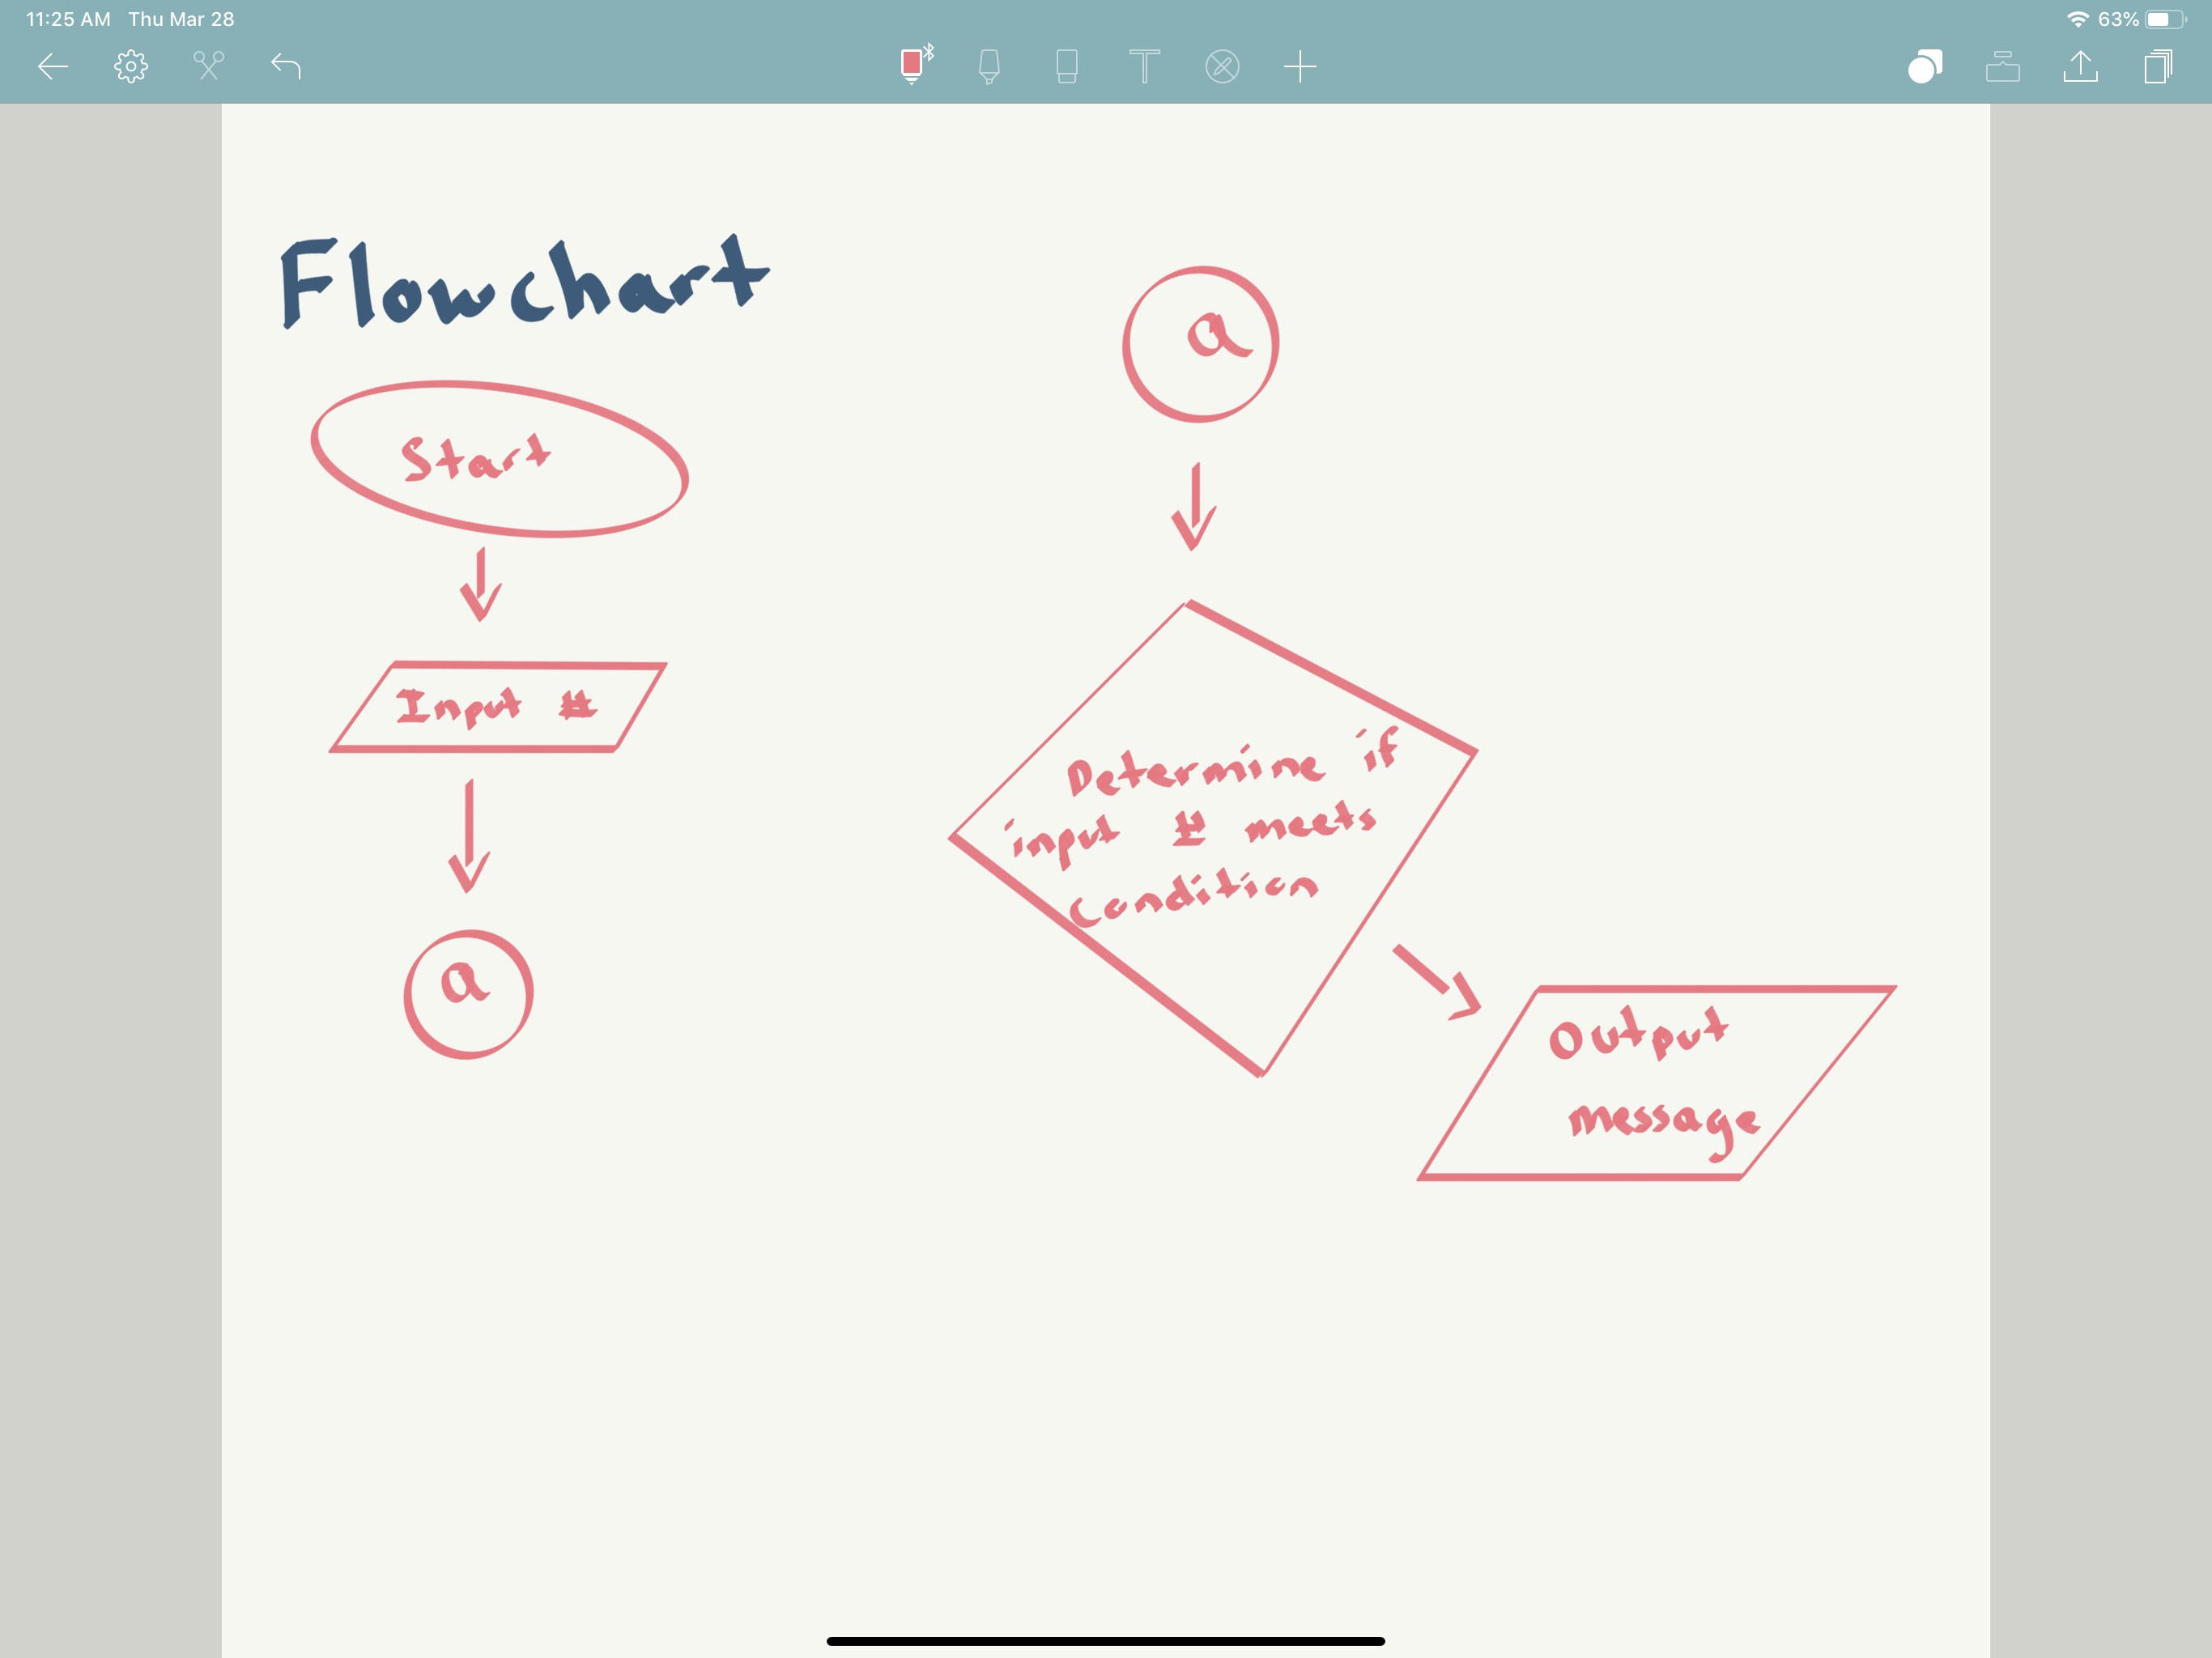 11:25 AM Thu Mar 28
63%
Flowchart
Start
Input #
a
a
Determine if
input # meets
condition
Output
message